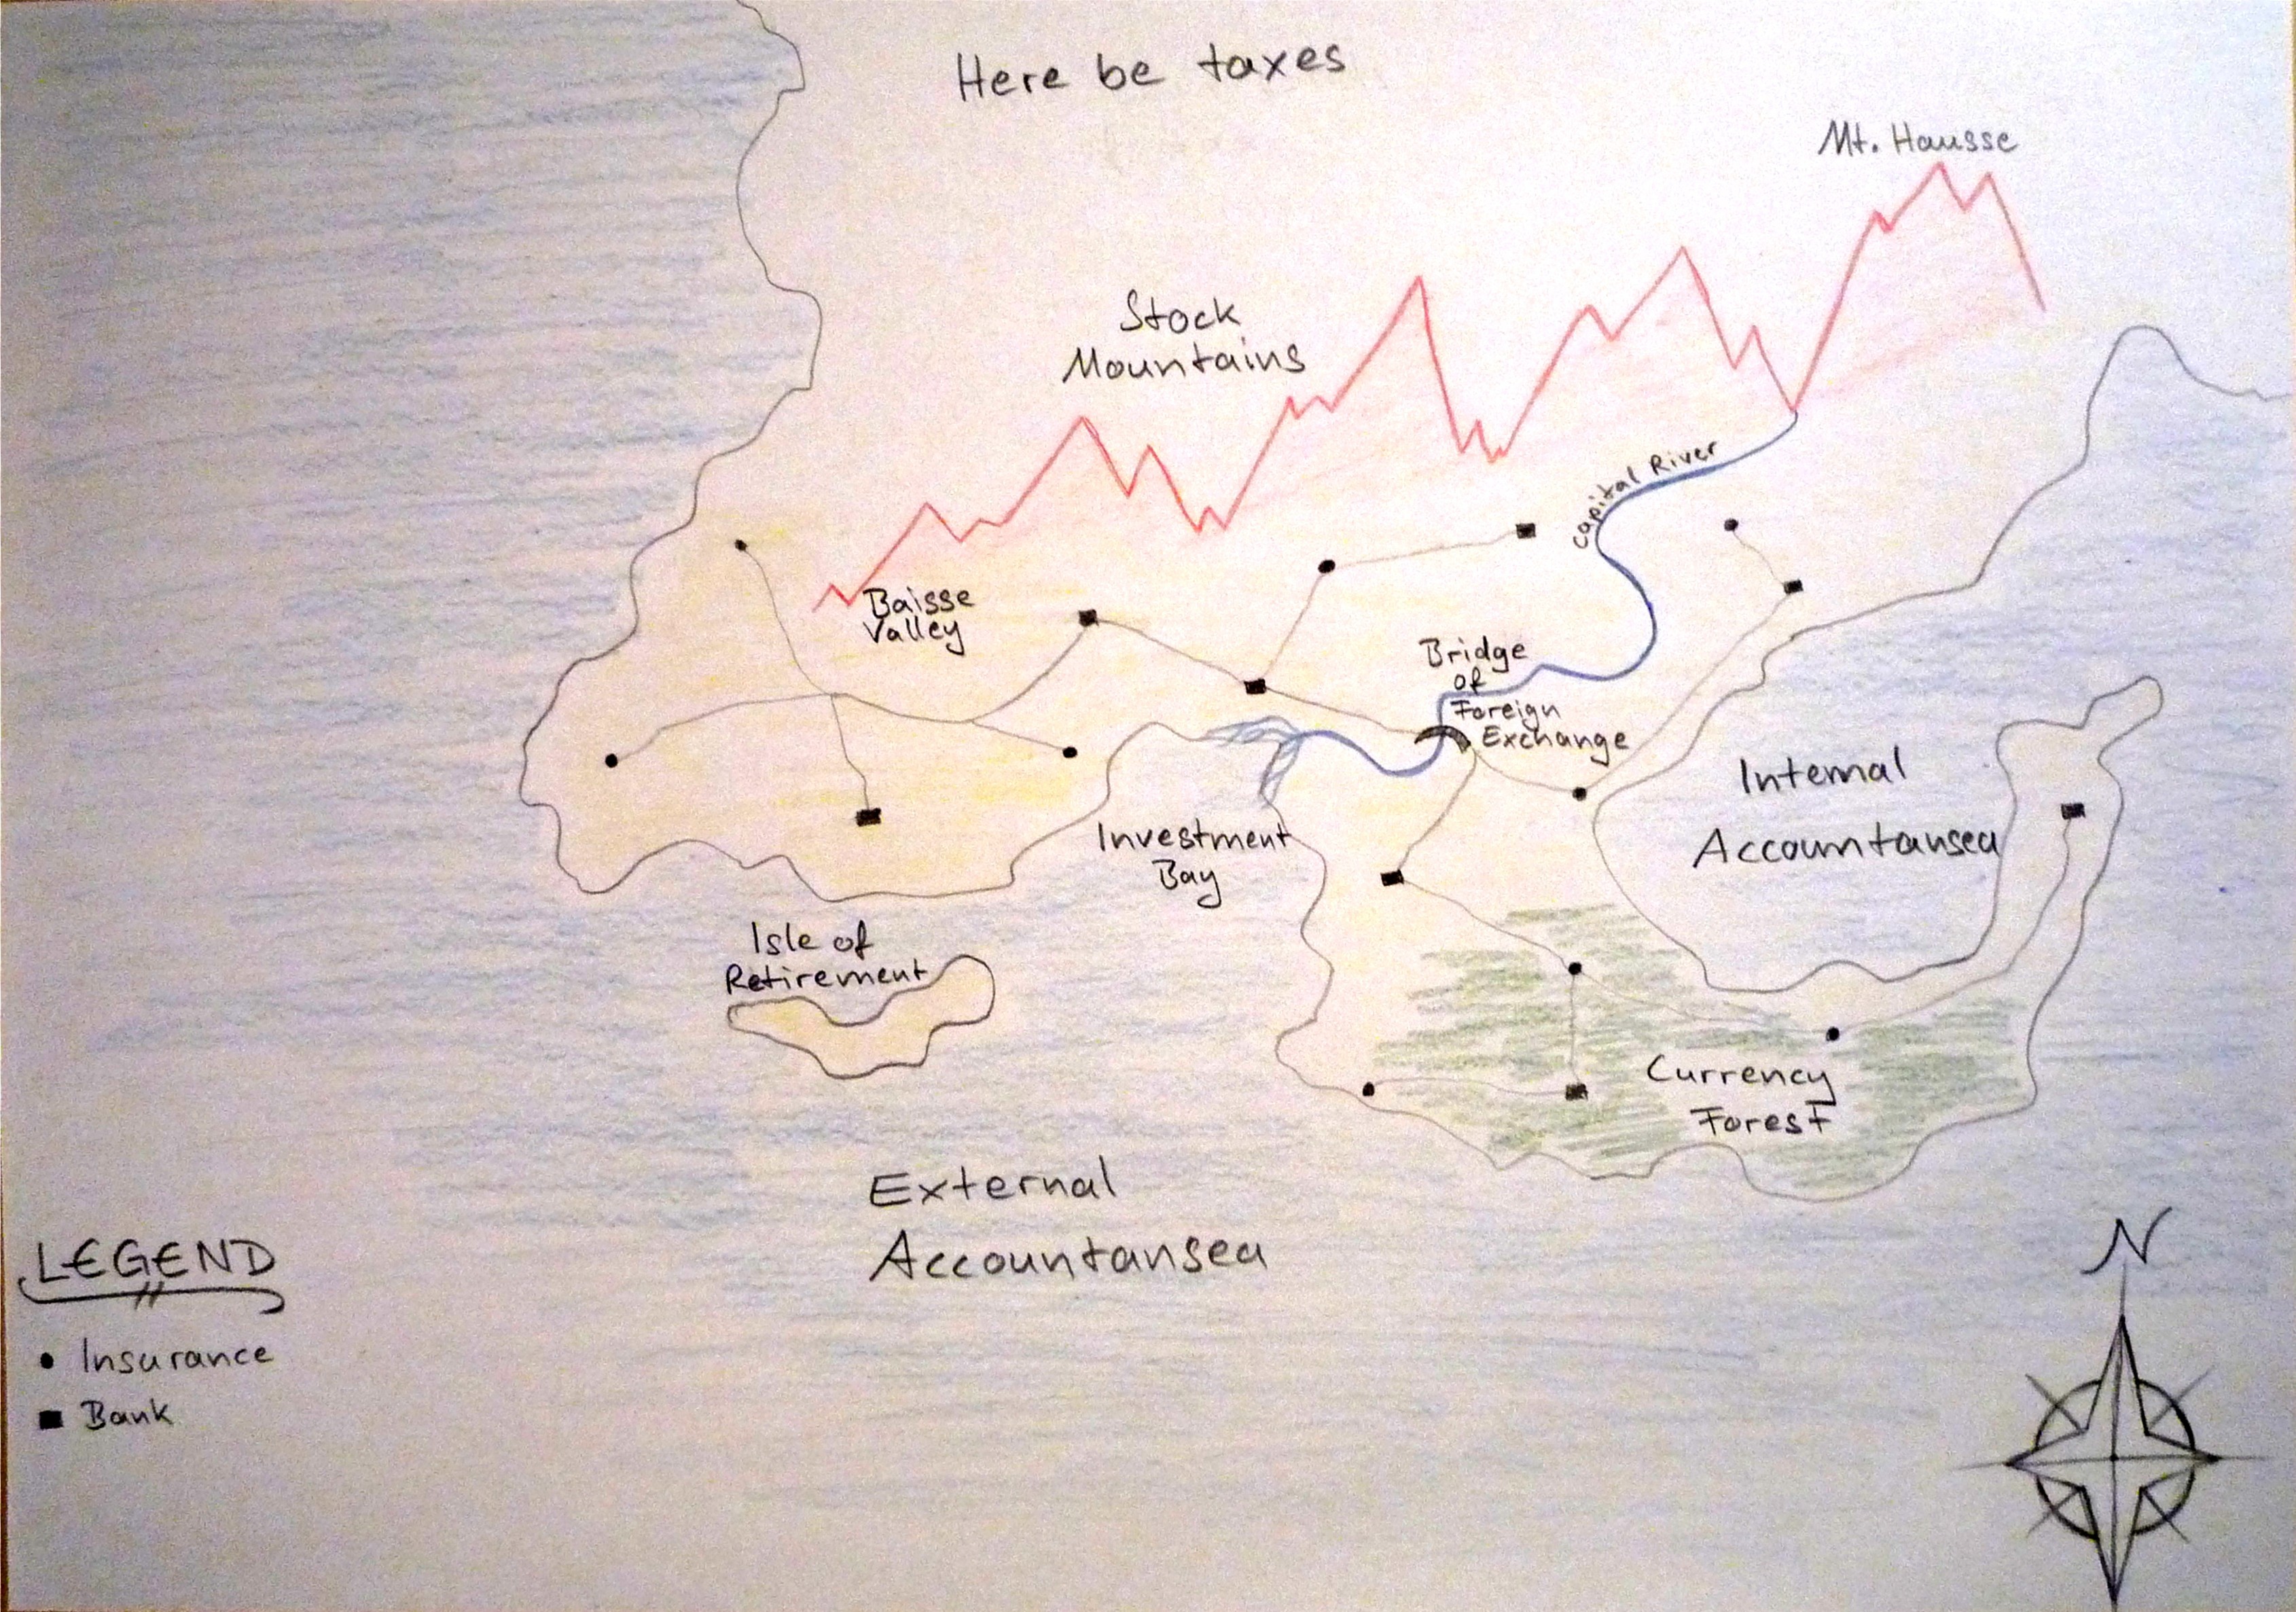 Here be taxes
Mt. Hausse
Stock
Mountains
Capital River
Baisse
Valley
Bridge
of
Foreign
Exchange
Internal
Accountansea
Investment
Bay
Isle of
Retirement
Currency
Forest
External
Accountansea
N
LEGEND
Insurance
Bank